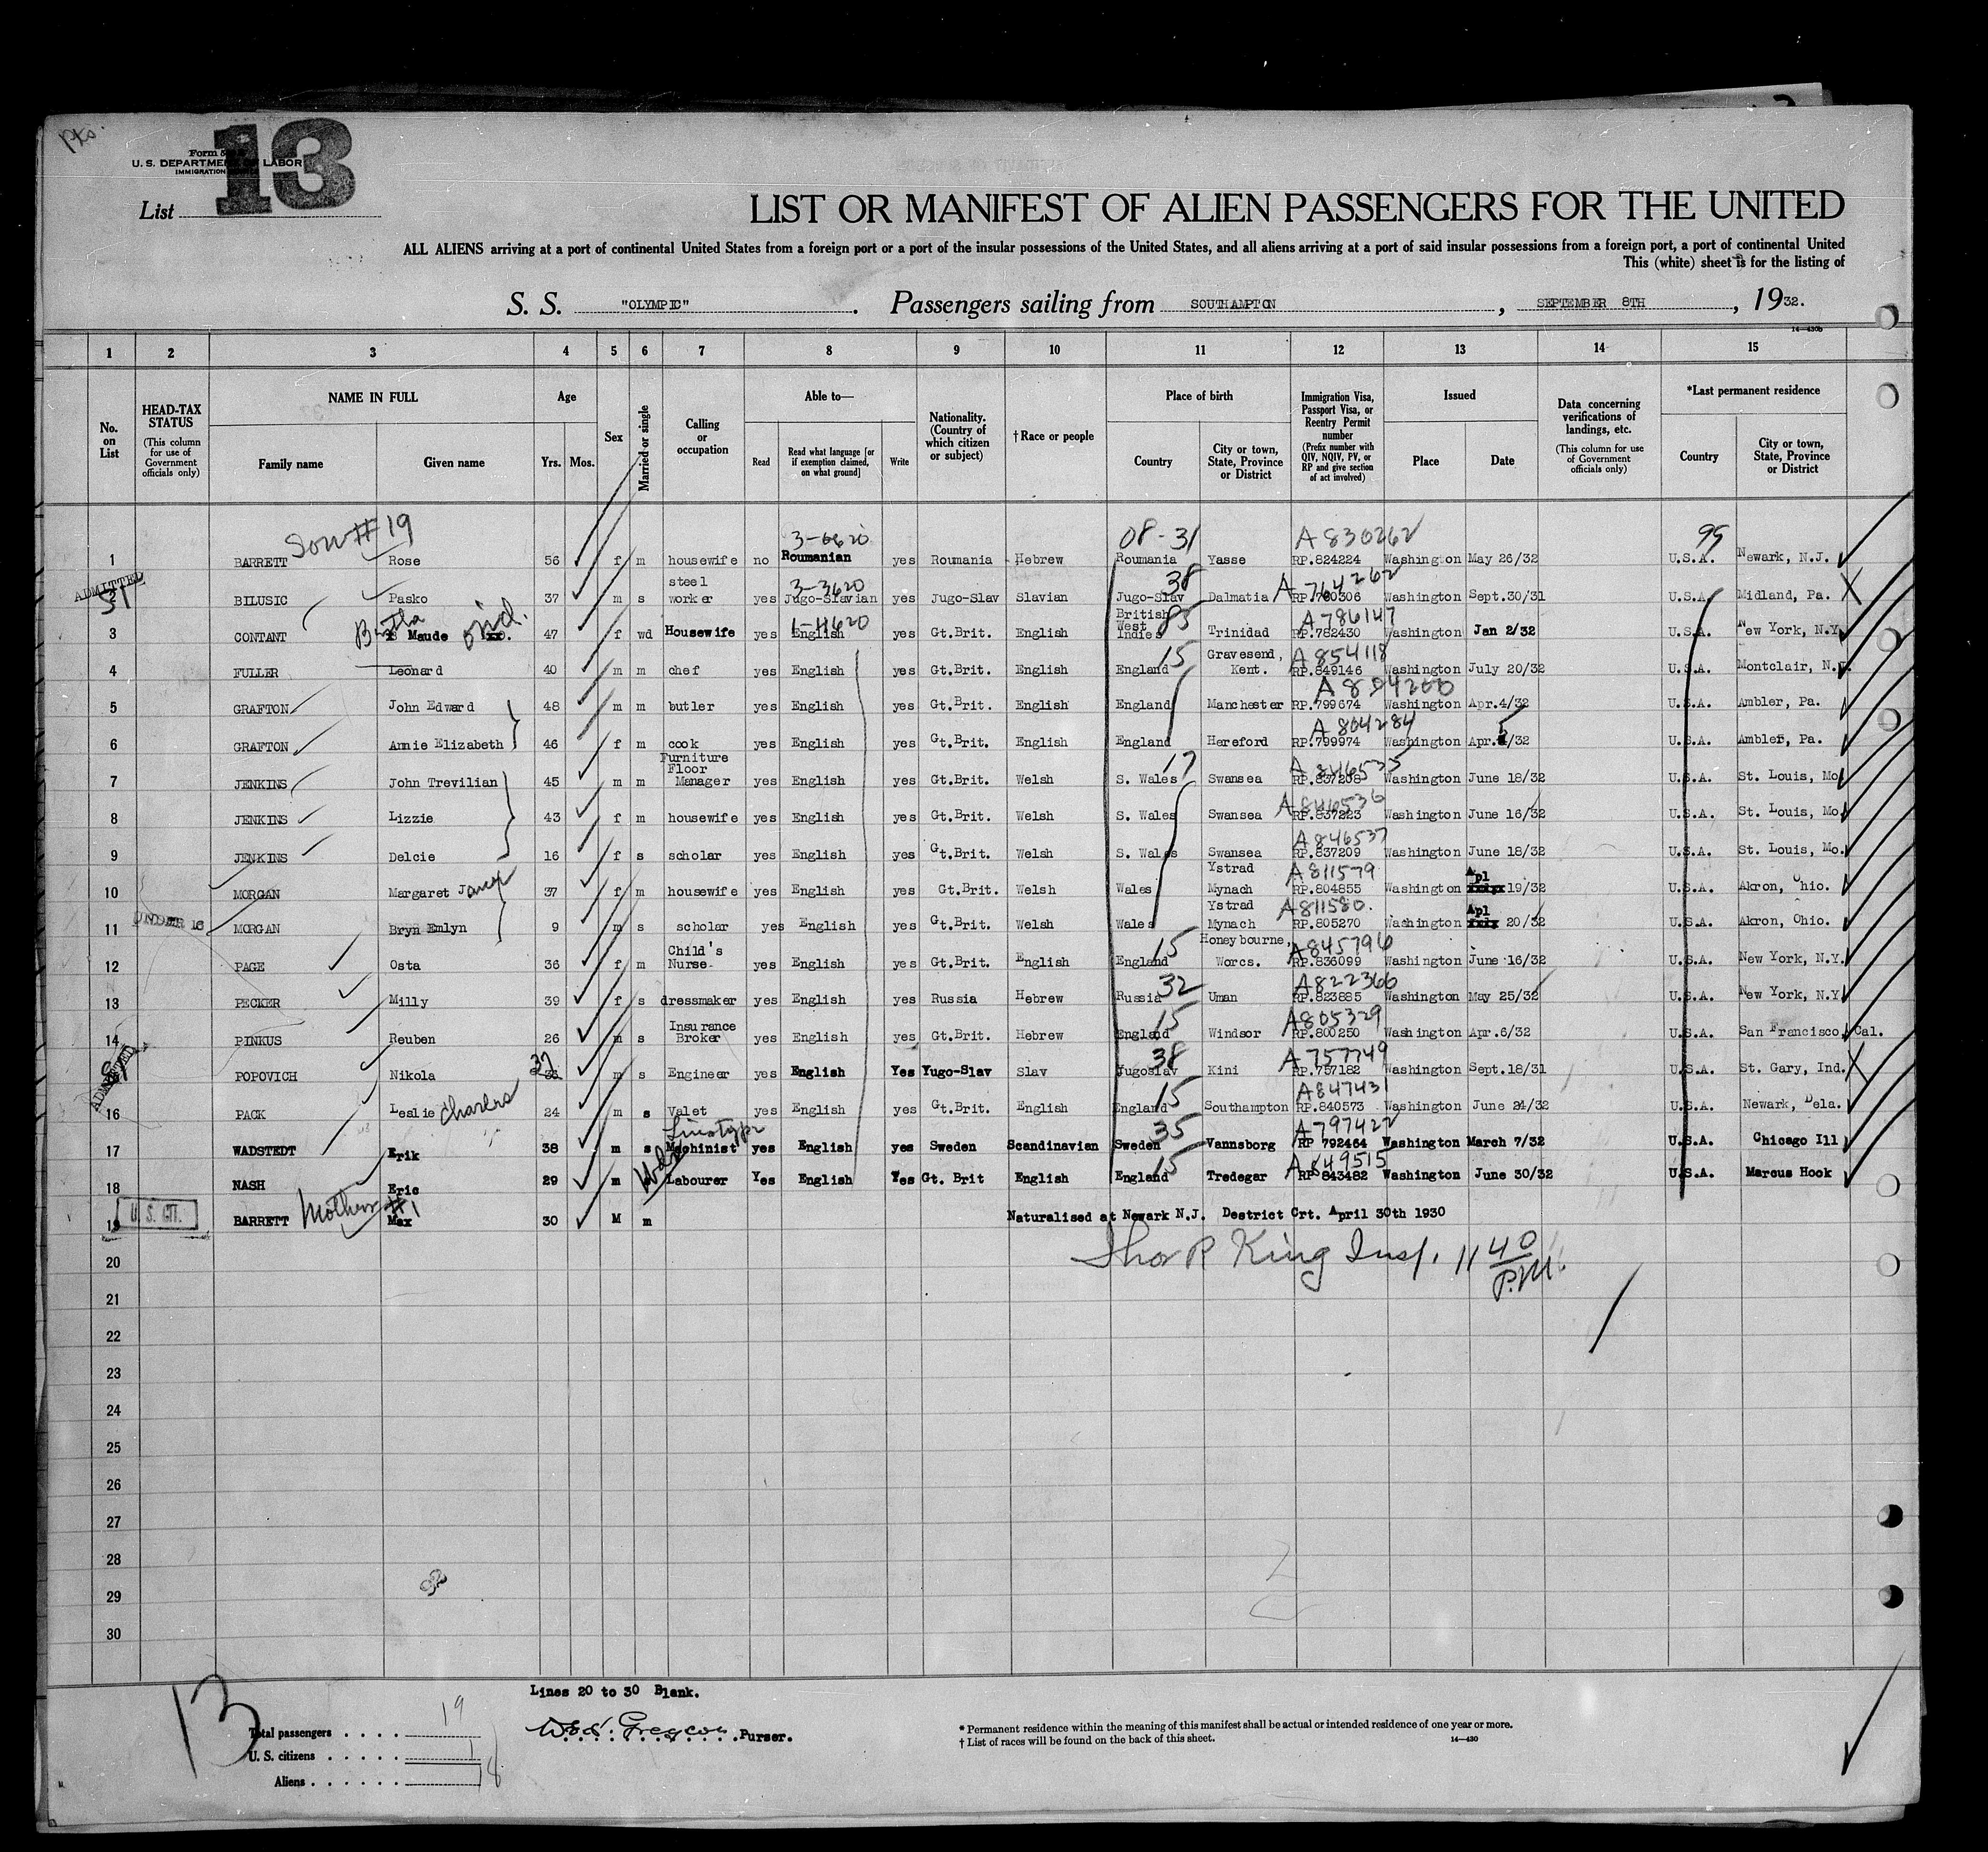 Form 500
U. S. DEPARTMENT OF LABOR
IMMIGRATION
13
List
LIST OR MANIFEST OF ALIEN PASSENGERS FOR THE UNITED
ALL ALIENS arriving at a port of continental United States from a foreign port or a port of the insular possessions of the United States, and all aliens arriving at a port of said insular possessions from a foreign port, a port of continental United
This (white) sheet is for the listing of
S. S. "OLYMPIC". Passengers sailing from SOUTHAMPTON, SEPTEMBER 8TH, 1932.
14—430b
1 2 3 4 5 6 7 8 9 10 11 12 13 14 15
No. on List
HEAD-TAX STATUS (This column for use of Government officials only)
NAME IN FULL
Family name Given name
Age
Yrs. Mos.
Sex
Married or single
Calling or occupation
Able to—
Read Read what language [or if exemption claimed, on what ground] Write
Nationality. (Country of which citizen or subject)
† Race or people
Place of birth
Country City or town, State, Province or District
Immigration Visa, Passport Visa, or Reentry Permit number (Prefix number with QIV, NQIV, PV, or RP and give section of act involved)
Issued
Place Date
Data concerning verifications of landings, etc. (This column for use of Government officials only)
*Last permanent residence
Country City or town, State, Province or District
Son #19 3-6620 08-31 A 830262 99
1 BARRETT Rose 56 f m housewife no Roumanian yes Roumania Hebrew Roumania Yasse RP.824224 Washington May 26/32 U.S.A. Newark, N.J.
ADMITTED 51 3-3620 38 A 764262
2 BILUSIC Pasko 37 m s steel worker yes Jugo-Slavian yes Jugo-Slav Slavian Jugo-Slav Dalmatia RP.760306 Washington Sept.30/31 U.S.A. Midland, Pa. X
Bertha 1-4620 83 A 786147
3 CONTANT Maude 47 f wd Housewife yes English yes Gt.Brit. English British West Indies Trinidad RP.782430 Washington Jan 2/32 U.S.A. New York, N.Y.
15 A 854118
4 FULLER Leonard 40 m m chef yes English yes Gt.Brit. English England Gravesend, Kent. RP.849146 Washington July 20/32 U.S.A. Montclair, N.J.
A 804200
5 GRAFTON John Edward 48 m m butler yes English yes Gt.Brit. English England Manchester RP.799674 Washington Apr.4/32 U.S.A. Ambler, Pa.
A 804284
6 GRAFTON Annie Elizabeth 46 f m cook yes English yes Gt.Brit. English England Hereford RP.799974 Washington Apr.5/32 U.S.A. Ambler, Pa.
17 A 846535
7 JENKINS John Trevilian 45 m m Furniture Floor Manager yes English yes Gt.Brit. Welsh S. Wales Swansea RP.837208 Washington June 18/32 U.S.A. St. Louis, Mo.
A 846536
8 JENKINS Lizzie 43 f m housewife yes English yes Gt.Brit. Welsh S. Wales Swansea RP.837223 Washington June 16/32 U.S.A. St. Louis, Mo.
A 846537
9 JENKINS Delcie 16 f s scholar yes English yes Gt.Brit. Welsh S. Wales Swansea RP.837209 Washington June 18/32 U.S.A. St. Louis, Mo.
A 811579
10 MORGAN Margaret Janet 37 f m housewife yes English yes Gt.Brit. Welsh Wales Ystrad Mynach RP.804855 Washington Apl 19/32 U.S.A. Akron, Ohio.
UNDER 16 A 811580.
11 MORGAN Bryn Emlyn 9 m s scholar yes English yes Gt.Brit. Welsh Wales Ystrad Mynach RP.805270 Washington Apl 20/32 U.S.A. Akron, Ohio.
15 A 845796
12 PAGE Osta 36 f m Child's Nurse yes English yes Gt.Brit. English England Honeybourne, Worcs. RP.836099 Washington June 16/32 U.S.A. New York, N.Y.
32 A 822366
13 PECKER Milly 39 f s dressmaker yes English yes Russia Hebrew Russia Uman RP.823885 Washington May 25/32 U.S.A. New York, N.Y.
15 A 805329
14 PINKUS Reuben 26 m s Insurance Broker yes English yes Gt.Brit. Hebrew England Windsor RP.800250 Washington Apr.6/32 U.S.A. San Francisco, Cal.
ADMITTED 37 38 A 757749
POPOVICH Nikola m s Engineer yes English Yes Yugo-Slav Slav Jugoslav Kini RP.757182 Washington Sept.18/31 U.S.A. St. Gary, Ind. X
15 A 847431
16 PACK Leslie Charles 24 m s Valet yes English yes Gt.Brit. English England Southampton RP.840573 Washington June 24/32 U.S.A. Newark, Dela.
Linotype 35 A 797422
17 WADSTEDT Erik 38 m s Machinist yes English yes Sweden Scandinavian Sweden Vannsborg RP 792464 Washington March 7/32 U.S.A. Chicago Ill
Wd 15 A 849515
18 NASH Eric 29 m Labourer Yes English Yes Gt. Brit English England Tredegar RP 843482 Washington June 30/32 U.S.A. Marcus Hook
U. S. CIT. Mother #1
19 BARRETT Max 30 M m Naturalised at Newark N.J. Destrict Crt. April 30th 1930
20 Thos P King Insp. 11 40 P.M.
21
22
23
24
25
26
27
28
29
30
Lines 20 to 30 Blank.
13
Total passengers . . . . 19
U. S. citizens . . . . . 1
Aliens . . . . . . 18
Purser.
* Permanent residence within the meaning of this manifest shall be actual or intended residence of one year or more.
† List of races will be found on the back of this sheet.
14—430